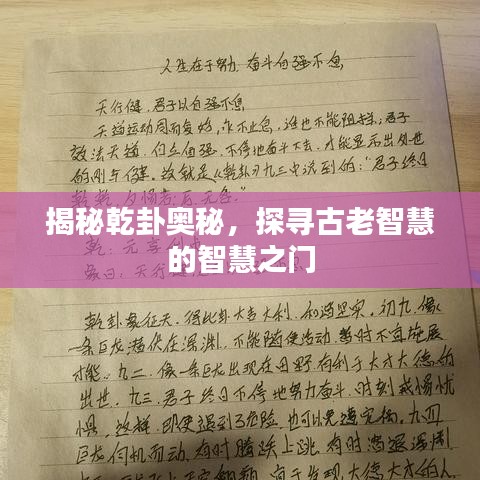 人生在于努力 奋斗自强不息
天行健,君子以自强不息
天道运动周而复始,永不止息,谁也不能阻挡;君子
效法天道,自立自强,不停地奋斗下去,才能显示出处世
的刚与健,这就是《乾卦》九三中说到的:"君子终日
乾乾
揭秘乾卦奥秘,探寻古老智慧
的智慧之门
乾:元亨利
象曰:天行健
乾卦象征天,得此卦大吉大利,和谐坚实,初九,像
一条巨龙潜伏在深渊,不能随便活动,暂时不宜施展
才能。九二,像一条巨龙出现在田野,有利于大才大德的
出世。九三,君子终日不停地努力奋斗,时刻戒惕忧
惧,这样,即使遇到了危险,也可以免遭灾伤。九四
巨龙伺机而动,有时腾跃上跳,有时潜退深渊
发现大德大才的人